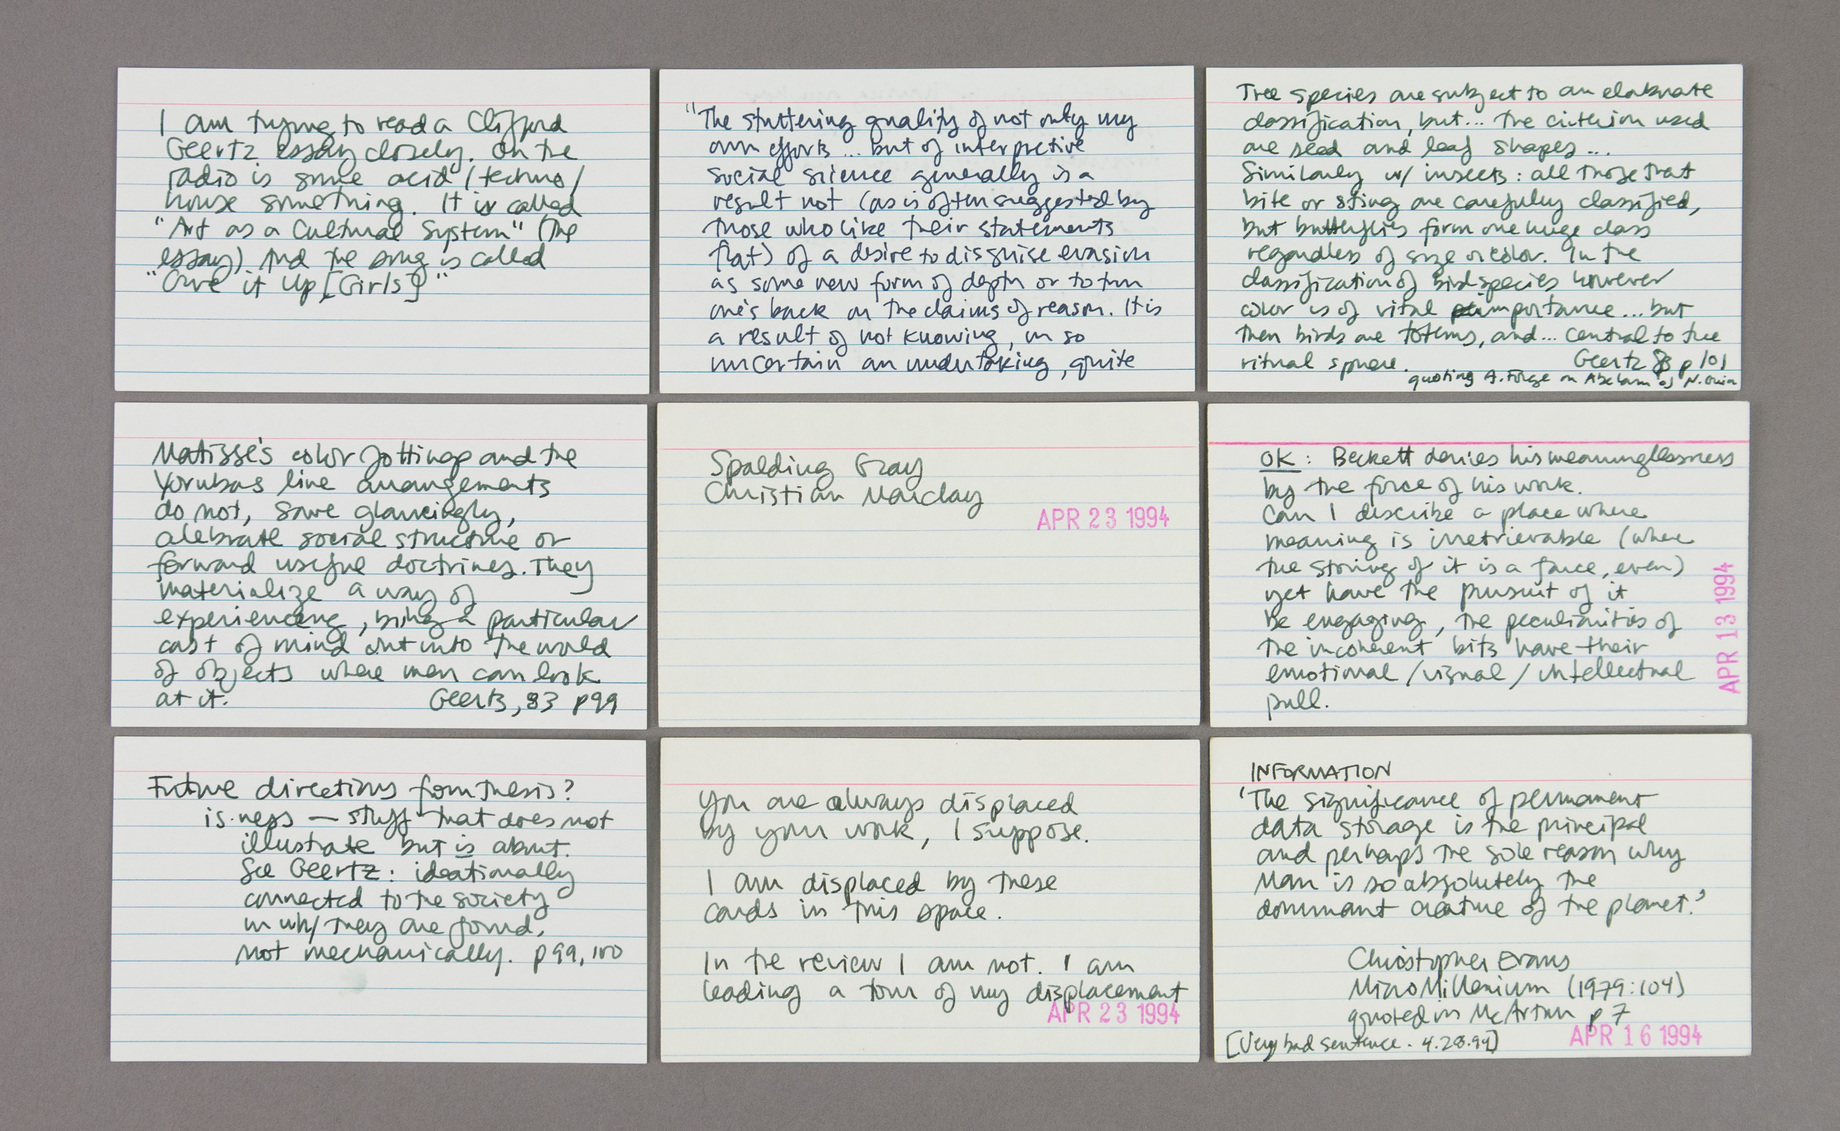 I am trying to read a Clifford
Geertz essay closely. On the
radio is some acid/techno/
house something. It is called
"Art as a Cultural System" (the
essay) And the song is called
"Give it Up [Girls]"
"The stuttering quality of not only my
own efforts ... but of interpretive
social science generally is a
result not (as is often suggested by
those who like their statements
flat) of a desire to disguise evasion
as some new form of depth or to turn
one's back on the claims of reason. It is
a result of not knowing, in so
uncertain an undertaking, quite
Tree species are subject to an elaborate
classification, but... the criterion used
are seed and leaf shapes...
Similarly w/ insects: all those that
bite or sting are carefully classified,
but butterflies form one huge class
regardless of size or color. In the
classification of bird species however
color is of vital importance... but
then birds are totems, and... central to the
ritual sphere. Geertz 83 p 101
quoting A. Forge on Abelam of N. Guin
Matisse's color jottings and the
Yorubas line arrangements
do not, save glancingly,
celebrate social structure or
forward useful doctrines. They
materialize a way of
experiencing, bring a particular
cast of mind out into the world
of objects where men can look
at it. Geertz, 83 p99
Spalding Gray
Christian Marclay
APR 23 1994
OK: Beckett denies his meaninglessness
by the force of his work.
Can I describe a place where
meaning is irretrievable (where
the storing of it is a farce, even)
yet have the pursuit of it
be engaging, the peculiarities of
the incoherent bits have their
emotional/visual/intellectual
pull.
APR 13 1994
Future directions from thesis?
is.ness — stuff that does not
illustrate but is about.
See Geertz: ideationally
connected to the society
in wh/ they are found,
not mechanically. p 99, 100
You are always displaced
by your work, I suppose.
I am displaced by these
cards in this space.
In the review I am not. I am
leading a tour of my displacement
APR 23 1994
INFORMATION
'The significance of permanent
data storage is the principal
and perhaps the sole reason why
Man is so absolutely the
dominant creature of the planet.'
Christopher Evans
MicroMillenium (1979:104)
quoted in McArthur p 7
[Very bad sentence. 4.28.94]
APR 16 1994